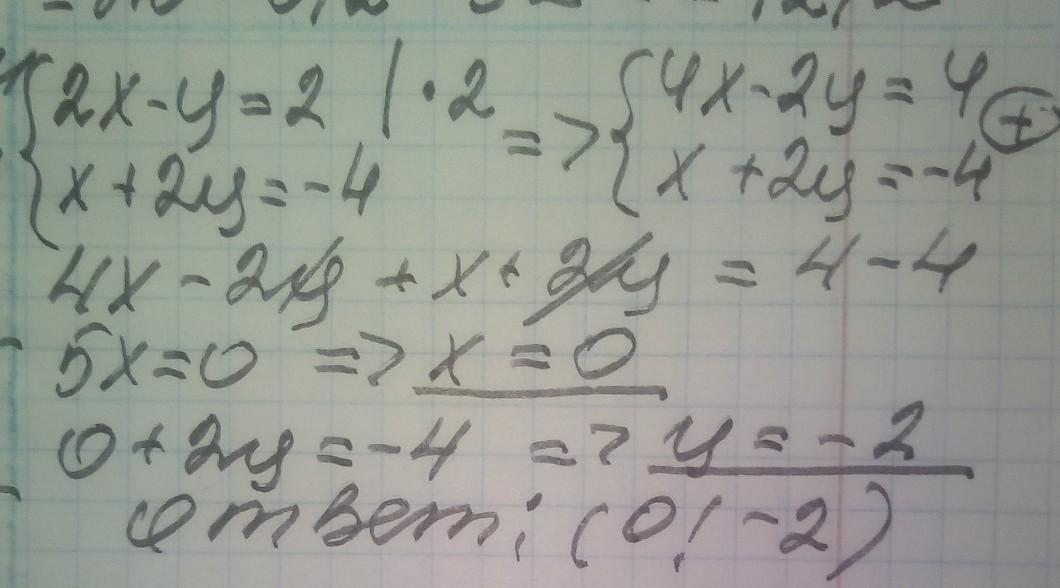 {2x-y=2 |·2 => {4x-2y=4 (+)
{x+2y=-4 {x+2y=-4
4x-2y+x+2y=4-4
5x=0 => x=0
0+2y=-4 => y=-2
Ответ: (0; -2)